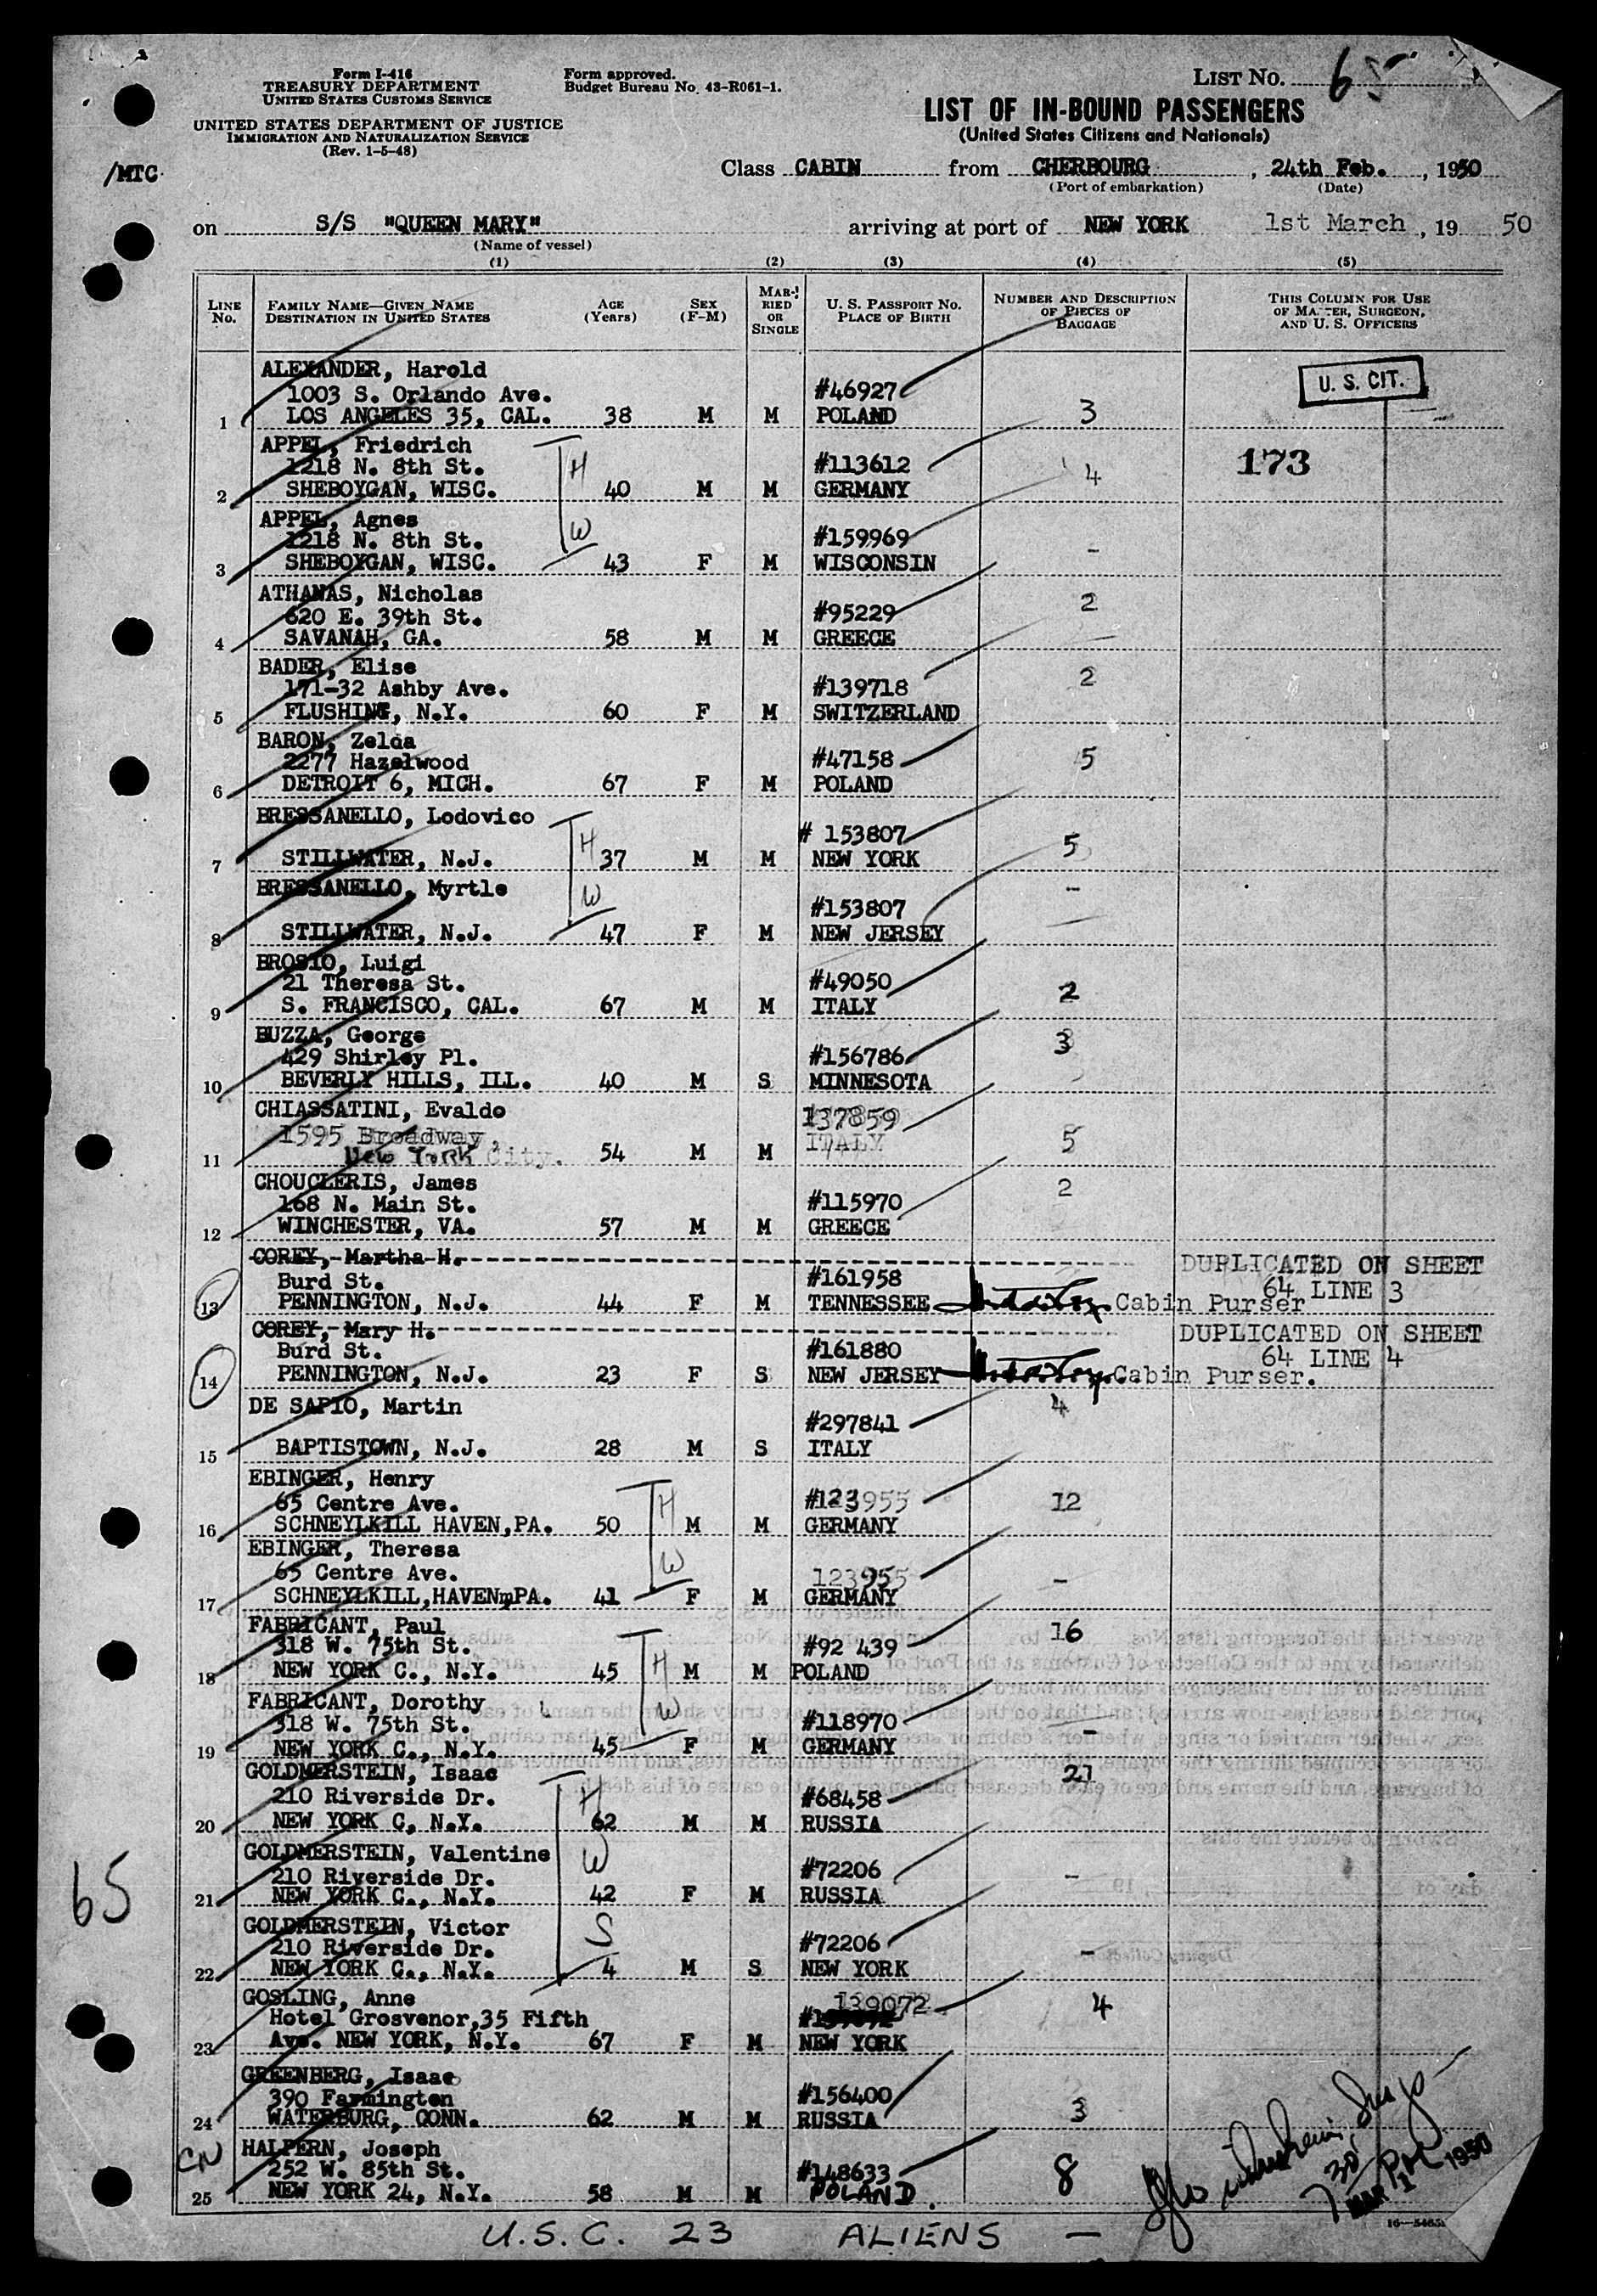 Form I-416
TREASURY DEPARTMENT
UNITED STATES CUSTOMS SERVICE
UNITED STATES DEPARTMENT OF JUSTICE
IMMIGRATION AND NATURALIZATION SERVICE
(Rev. 1-5-48)
Form approved.
Budget Bureau No. 43-R061-1.
LIST No. 65
LIST OF IN-BOUND PASSENGERS
(United States Citizens and Nationals)
/MTC
Class CABIN from CHERBOURG, 24th Feb., 1950
(Port of embarkation) (Date)
on S/S "QUEEN MARY" arriving at port of NEW YORK 1st March, 19 50
(Name of vessel)
(1) (2) (3) (4) (5)
LINE No.
FAMILY NAME—GIVEN NAME
DESTINATION IN UNITED STATES
AGE (Years)
SEX (F-M)
MARRIED OR SINGLE
U. S. PASSPORT NO.
PLACE OF BIRTH
NUMBER AND DESCRIPTION OF PIECES OF BAGGAGE
THIS COLUMN FOR USE OF MASTER, SURGEON, AND U. S. OFFICERS
U. S. CIT.
ALEXANDER, Harold
1003 S. Orlando Ave. #46927
1 LOS ANGELES 35, CAL. 38 M M POLAND 3
APPEL, Friedrich H
1218 N. 8th St. #113612 173
2 SHEBOYGAN, WISC. 40 M M GERMANY 4
APPEL, Agnes W
1218 N. 8th St. #159969
3 SHEBOYGAN, WISC. 43 F M WISCONSIN -
ATHANAS, Nicholas
620 E. 39th St. #95229 2
4 SAVANAH, GA. 58 M M GREECE
BADER, Elise
171-32 Ashby Ave. #139718 2
5 FLUSHING, N.Y. 60 F M SWITZERLAND
BARON, Zelda
2277 Hazelwood #47158 5
6 DETROIT 6, MICH. 67 F M POLAND
BRESSANELLO, Lodovico H
# 153807 5
7 STILLWATER, N.J. 37 M M NEW YORK
BRESSANELLO, Myrtle W -
#153807
8 STILLWATER, N.J. 47 F M NEW JERSEY
BROSIO, Luigi
21 Theresa St. #49050 2
9 S. FRANCISCO, CAL. 67 M M ITALY
BUZZA, George 3
429 Shirley Pl. #156786
10 BEVERLY HILLS, ILL. 40 M S MINNESOTA
CHIASSATINI, Evaldo 137859
1595 Broadway, ITALY 5
11 New York City. 54 M M
CHOUCLERIS, James 2
168 N. Main St. #115970
12 WINCHESTER, VA. 57 M M GREECE
COREY, Martha H. DUPLICATED ON SHEET
Burd St. #161958 64 LINE 3
13 PENNINGTON, N.J. 44 F M TENNESSEE Cabin Purser
COREY, Mary H. DUPLICATED ON SHEET
Burd St. #161880 64 LINE 4
14 PENNINGTON, N.J. 23 F S NEW JERSEY Cabin Purser.
DE SAPIO, Martin 4
#297841
15 BAPTISTOWN, N.J. 28 M S ITALY
EBINGER, Henry H
65 Centre Ave. #123955 12
16 SCHNEYLKILL HAVEN,PA. 50 M M GERMANY
EBINGER, Theresa W
65 Centre Ave. 123955 -
17 SCHNEYLKILL,HAVENmPA. 41 F M GERMANY
FABRICANT, Paul H 16
318 W. 75th St. #92 439
18 NEW YORK C., N.Y. 45 M M POLAND
FABRICANT, Dorothy W
318 W. 75th St. #118970 -
19 NEW YORK C., N.Y. 45 F M GERMANY
GOLDMERSTEIN, Isaac H 21
210 Riverside Dr. #68458
20 NEW YORK C, N.Y. 62 M M RUSSIA
GOLDMERSTEIN, Valentine W
210 Riverside Dr. #72206 -
21 NEW YORK C., N.Y. 42 F M RUSSIA
GOLDMERSTEIN, Victor S
210 Riverside Dr. #72206 -
22 NEW YORK C., N.Y. 4 M S NEW YORK
GOSLING, Anne 139072 4
Hotel Grosvenor,35 Fifth
23 Ave. NEW YORK, N.Y. 67 F M NEW YORK
GREENBERG, Isaac
390 Farmington #156400
24 WATERBURG, CONN. 62 M M RUSSIA 3
CN HALPERN, Joseph
252 W. 85th St. #148633 8
25 NEW YORK 24, N.Y. 58 M M POLAND.
65
7 30 PM
MAR 1 1950
U.S.C. 23 ALIENS —